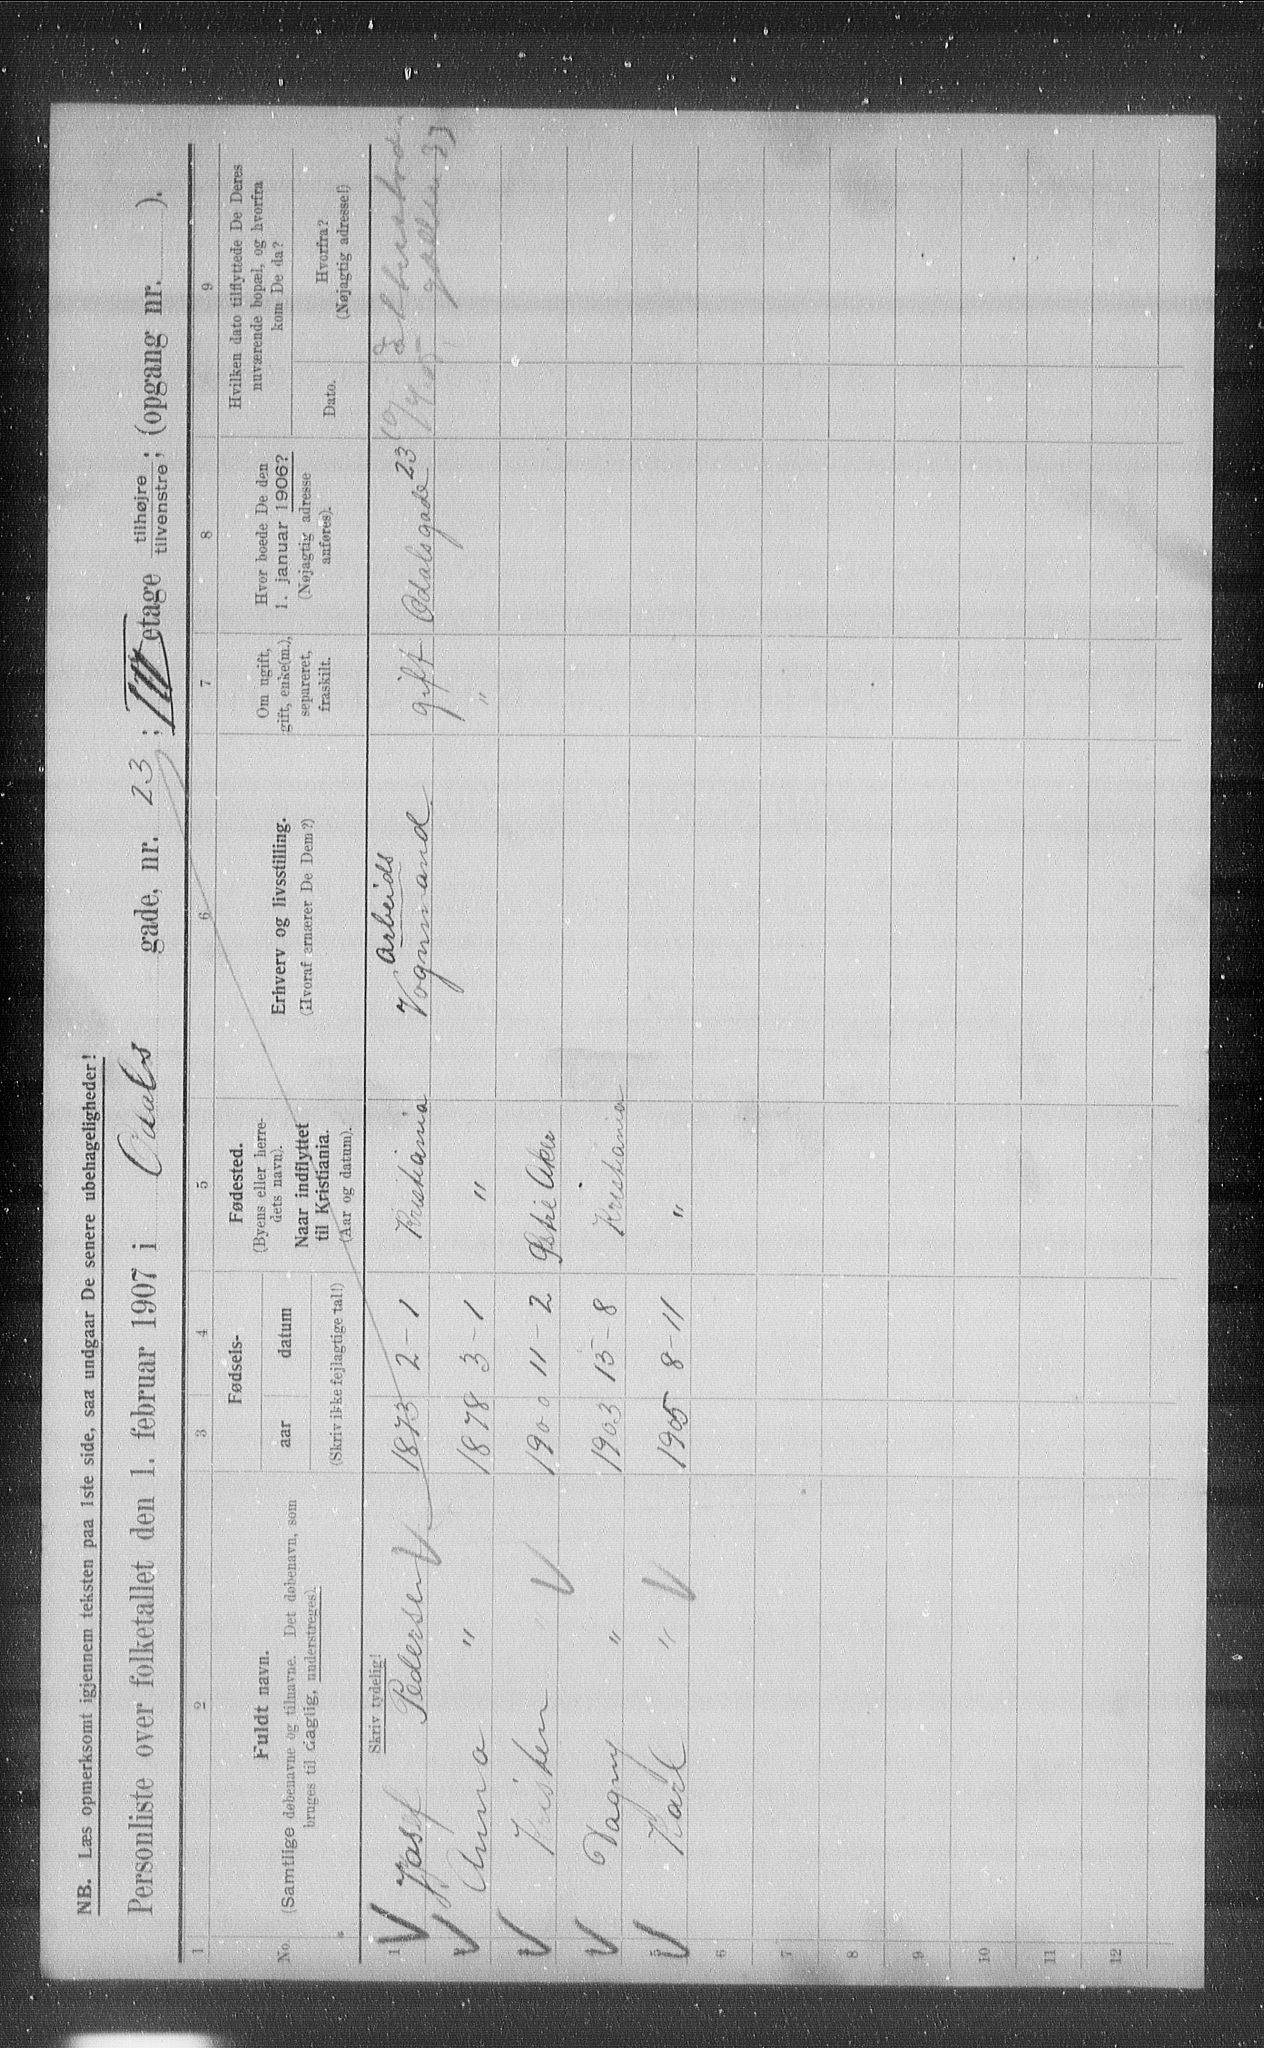 NB. Læs opmerksomt igjennem teksten paa 1ste side, saa undgaar De senere ubehageligheder!
Personliste over folketallet den 1. februar 1907 i Odals gade, nr. 23; III etage tilhøjre tilvenstre; (opgang nr. ).
1 2 3 4 5 6 7 8 9
No.
Fuldt navn.
(Samtlige døbenavne og tilnavne. Det døbenavn, som
bruges til daglig, understreges).
Fødsels-
aar
datum
(Skriv ikke fejlagtige tal!)
Fødested.
(Byens eller herre-
dets navn).
Naar indflyttet
til Kristiania.
(Aar og datum).
Erhverv og livsstilling.
(Hvoraf ernærer De Dem?)
Om ugift,
gift, enke(m.),
separeret,
fraskilt.
Hvor boede De den
1. januar 1906?
(Nøjagtig adresse
anføres).
Hvilken dato tilflyttede De Deres
nuværende bopæl, og hvorfra
kom De da?
Dato.
Hvorfra?
(Nøjagtig adresse!)
Skriv tydelig!
arbeids
1 Josef Pedersen 1873 2-1 Kristiania Vognmand gift Odalsgade 23
Anna " 1878 3-1 " "
Kristen " 1900 11-2 Østre Aker
Dagny " 1903 15-8 Kristiania
5 Karl " 1905 8-11 "
6
7
8
9
10
11
12